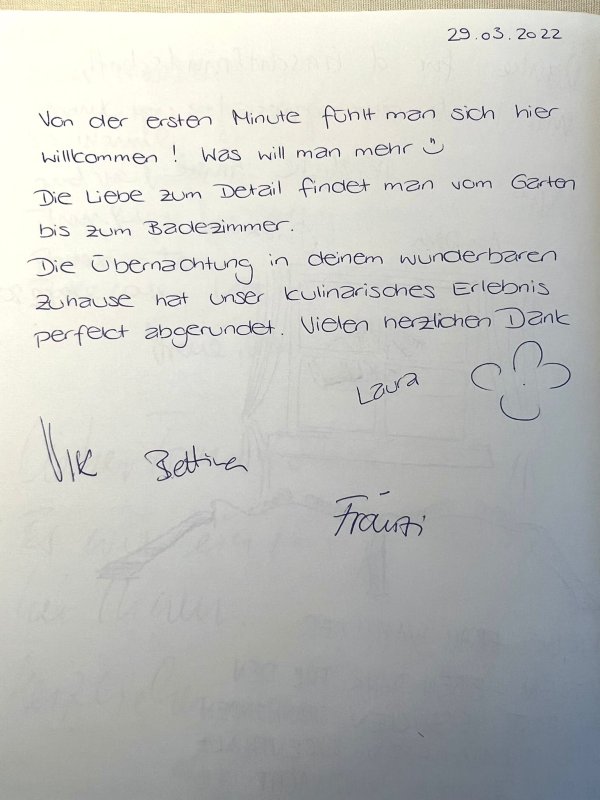 29.03.2022
Von der ersten Minute fühlt man sich hier
willkommen! Was will man mehr
Die Liebe zum Detail findet man vom Garten
bis zum Badezimmer.
Die Übernachtung in deinem wunderbaren
zuhause hat unser kulinarisches Erlebnis
perfekt abgerundet. Vielen herzlichen Dank
Laura
Bettina
Fränzi